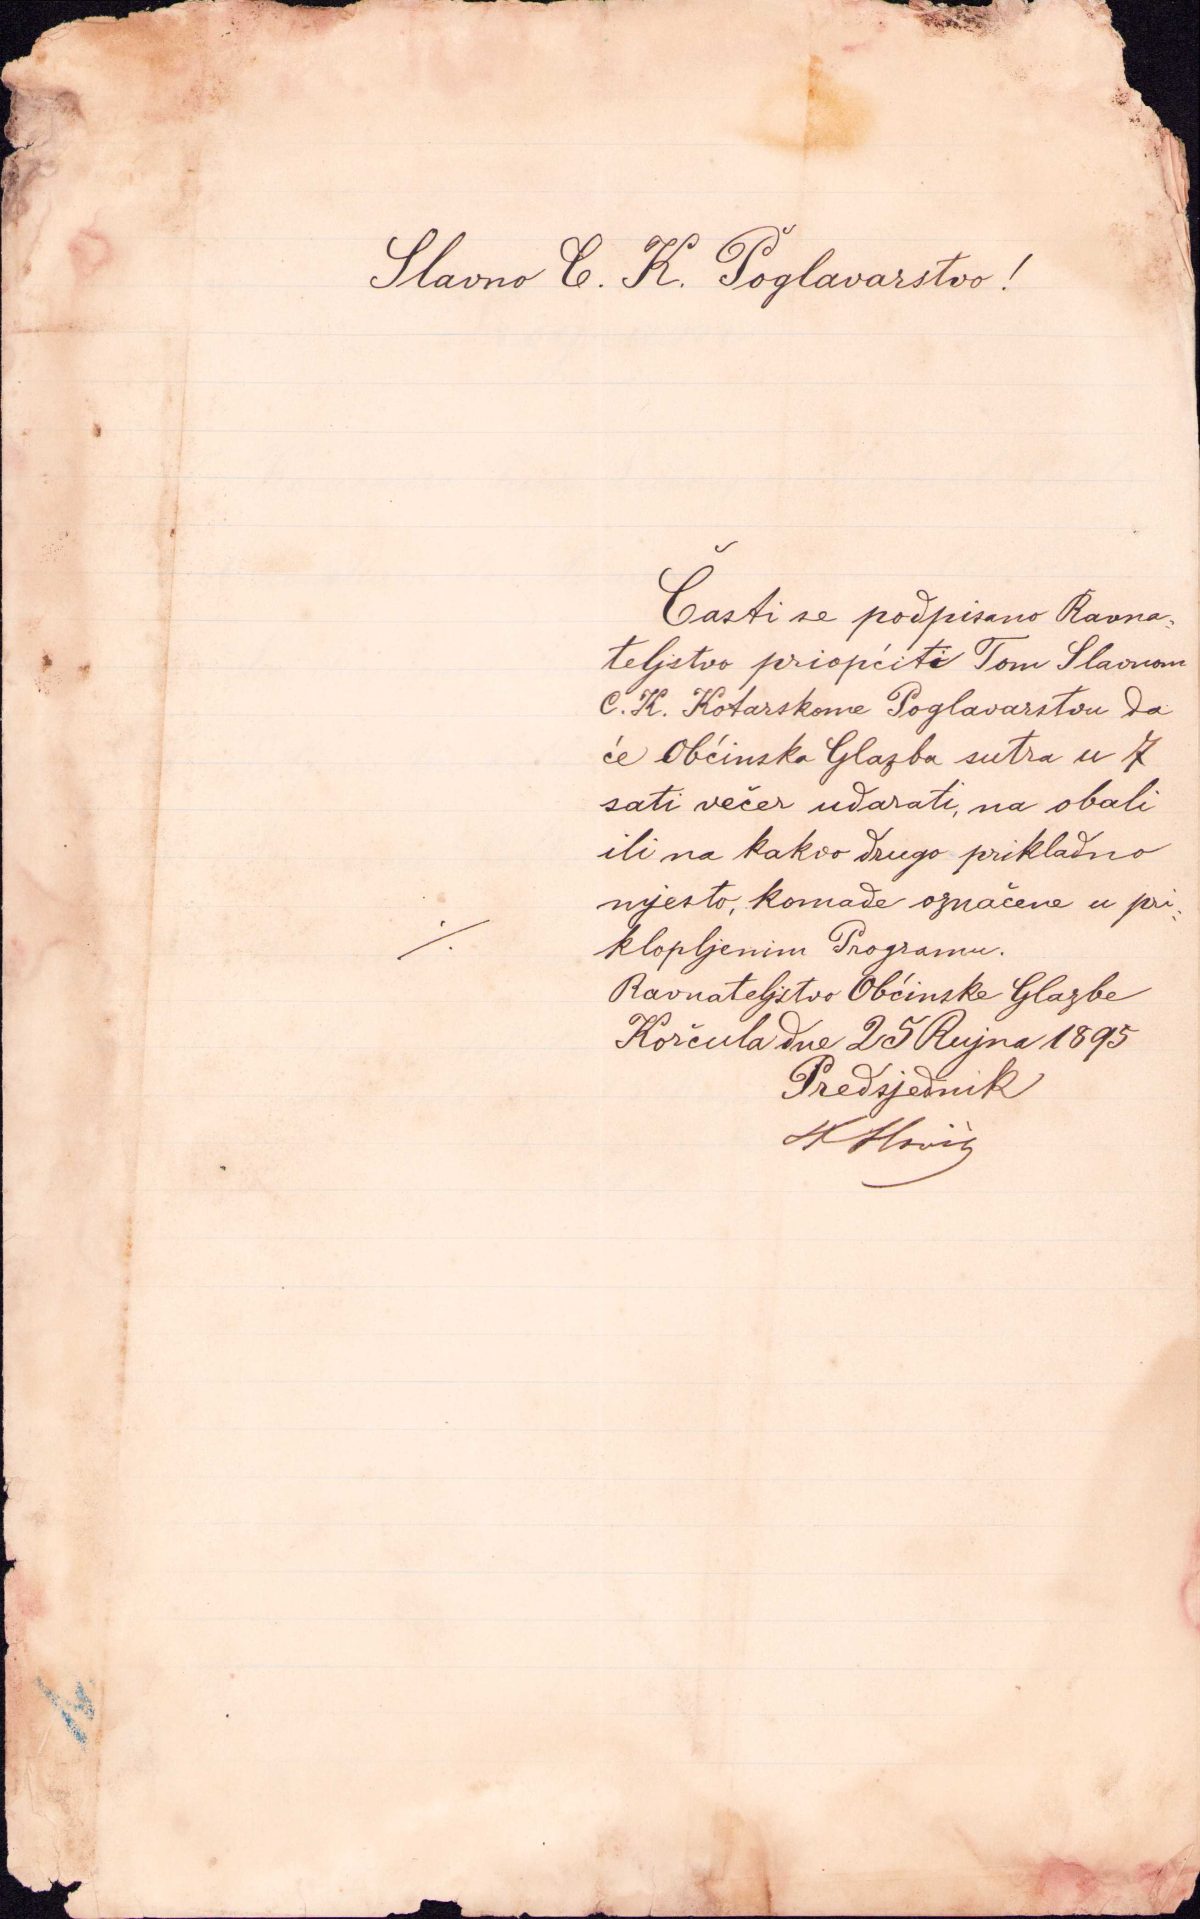 Slavno C. K. Poglavarstvo!
Časti se podpisano Ravna-
teljstvo priopćiti Tom Slavnom
C. K. Kotarskome Poglavarstvu da
će Obćinska Glazba sutra u 7
sati večer udarati, na obali
ili na kakvo drugo prikladno
mjesto, komade označene u pri-
klopljenim Programu.
Ravnateljstvo Obćinske Glazbe
Korčula dne 25 Rujna 1895
Predsjednik